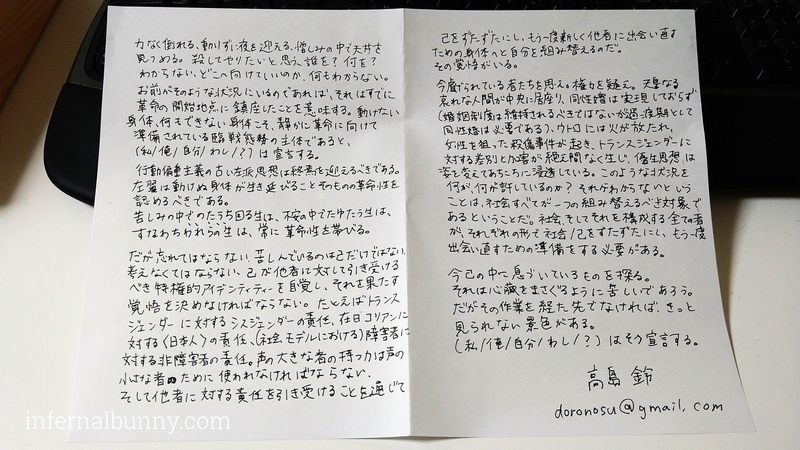 力なく倒れる、動けずに夜を迎える、憎しみの中で天井を
見つめる。殺してやりたいと思う、誰を？何を？
わからない、どこへ向けていいのか、何もわからない。
お前がそのような状況にいるのであれば、それはすでに
革命の開始地点に鎮座したことを意味する。動けない
身体、何もできない身体こそ、静かに革命に向けて
準備されている臨戦態勢の主体であると、
（私/俺/自分/わし/？）は宣言する。
行動偏重主義の古い左派思想は終焉を迎えるべきである。
左翼は動けぬ身体が生き延びることそのものの革命性を
認めるべきである。
苦しみの中でのたうち回る生は、不安の中でたゆたう生は、
すなわちわれらの生は、常に革命性を帯びる。
だが忘れてはならない、苦しんでいるのは己だけではない。
考えなくてはならない、己が他者に対して引き受ける
べき特権的アイデンティティーを自覚し、それを果たす
覚悟を決めなければならない。たとえばトランス
ジェンダーに対するシスジェンダーの責任、在日コリアンに
対する〈日本人〉の責任、（社会モデルにおける）障害者に
対する非障害者の責任。声の大きな者の持つ力は声の
小さな者のために使われなければならない。
そして他者に対する責任を引き受けることを通じて
己をずたずたにし、もう一度新しく他者に出会い直す
ための身体へと自分を組み替えるのだ。
その覚悟がいる。
今虐げられている者たちを思え。権力を疑え。天皇なる
哀れな人間が中央に居座り、同性婚は実現しておらず
（婚姻制度は維持されるべきではないが過渡期として
同性婚は必要である）、ウトロには火が放たれ、
女性を狙った殺傷事件が起き、トランスジェンダーに
対する差別と加害が絶え間なく生じ、優生思想は
姿を変えてあちこちに浸透している。このような状況を
何が、何が許しているのか？それがわからないという
ことは、社会すべてが一つの組み替えるべき対象で
あるということだ。社会、そしてそれを構成する全ての者
が、それぞれの形で社会/己をずたずたにし、もう一度
出会い直すための準備をする必要がある。
今己の中に息づいているものを探る。
それは心臓をまさぐるように苦しいであろう。
だがその作業を経た先でなければ、きっと
見られない景色がある。
（私/俺/自分/わし/？）はそう宣言する。
高島 鈴
doronosu@gmail.com
infernalbunny.com